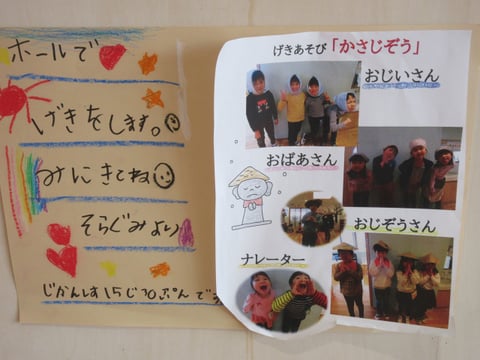 ホールで
げきをします。
みにきてね
そらぐみより
じかんは15じ30ぷんです
げきあそび「かさじぞう」
おじいさん
おばあさん
おじぞうさん
ナレーター